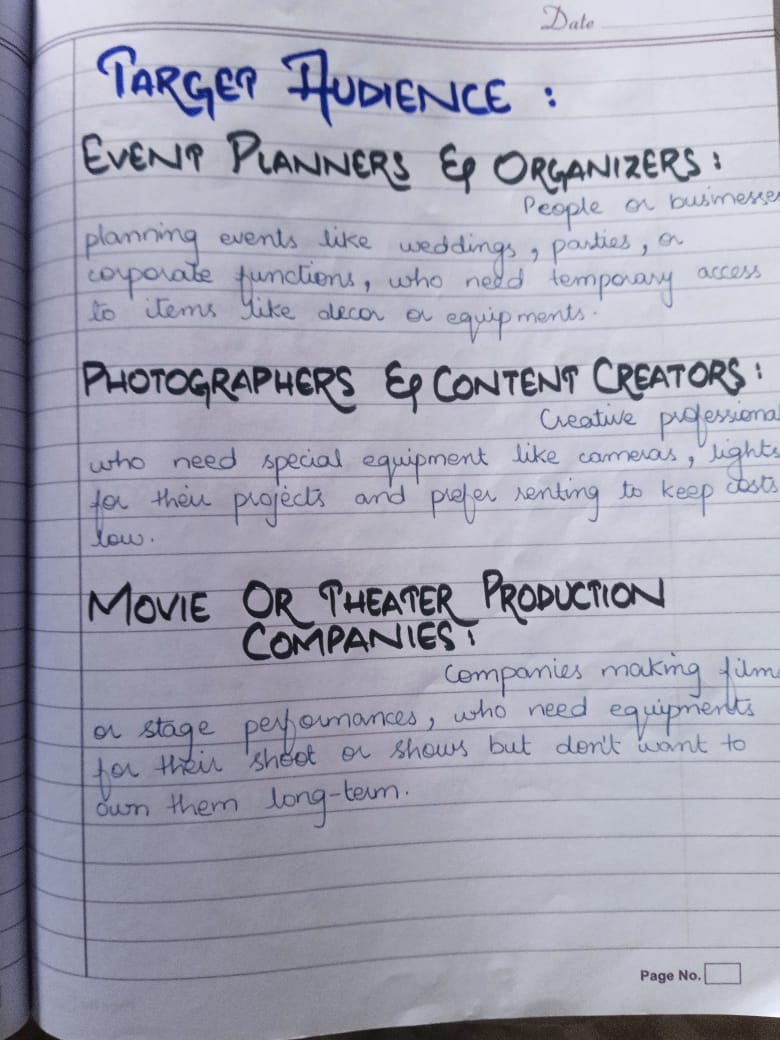 Date
TARGET AUDIENCE :
EVENT PLANNERS & ORGANIZERS :
People or businesses
planning events like weddings, parties, or
corporate functions, who need temporary access
to items like decor or equipments.
PHOTOGRAPHERS & CONTENT CREATORS :
Creative professional
who need special equipment like cameras, lights
for their projects and prefer renting to keep costs
low.
MOVIE OR THEATER PRODUCTION
COMPANIES :
Companies making film
or stage performances, who need equipments
for their shoot or shows but don't want to
own them long-term.
Page No.